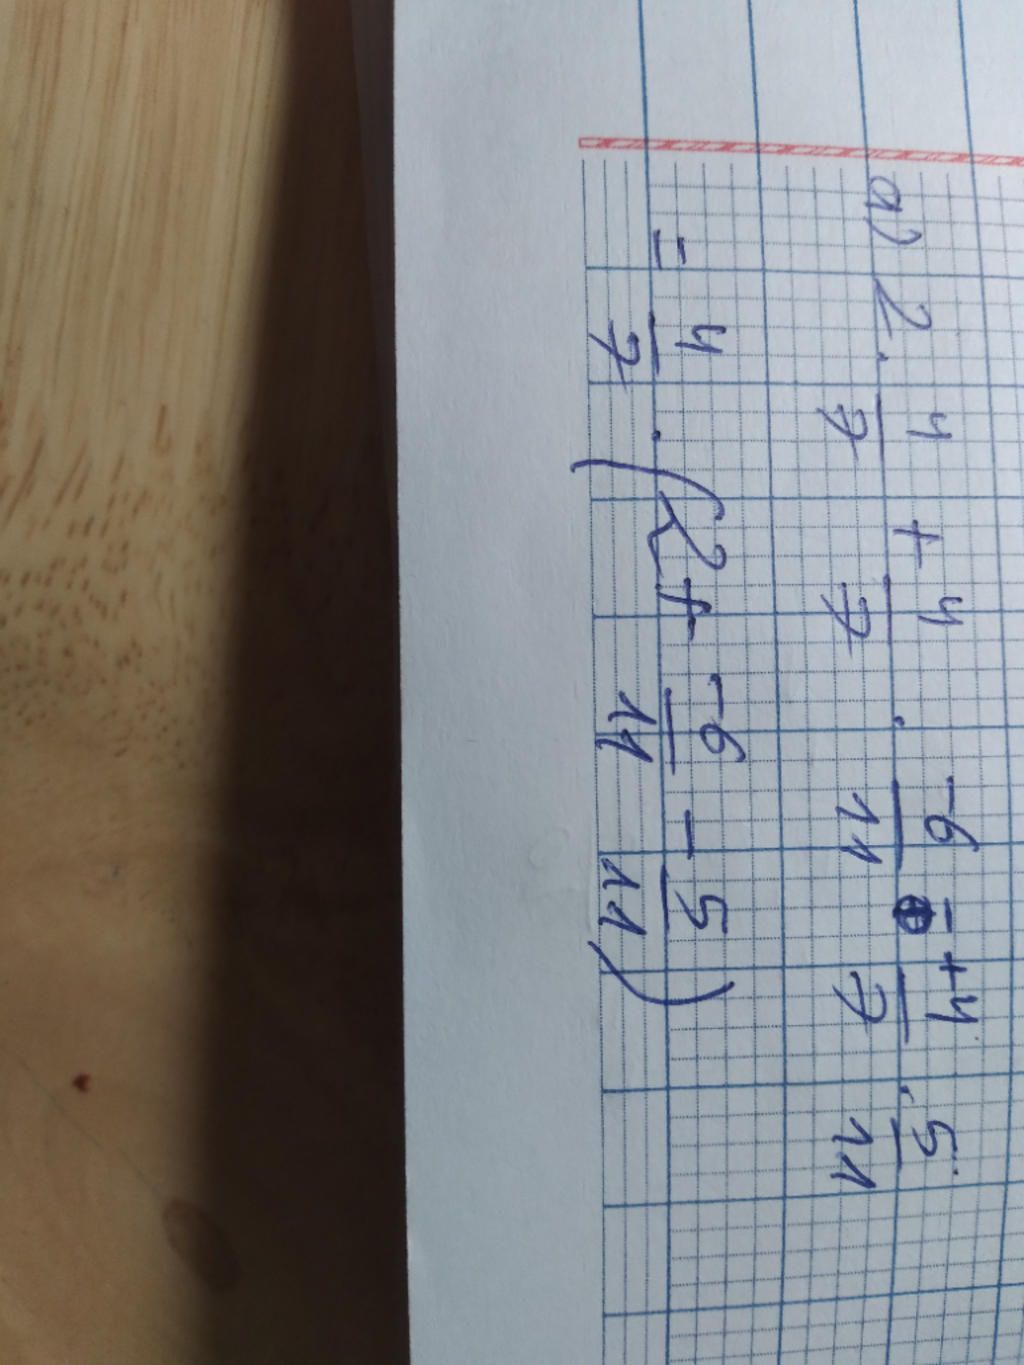 a) 2 . 4/7 + 4/7 . -6/11 - +4/7 . 5/11
= 4/7 . (2 + -6/11 - 5/11)